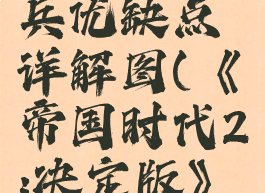 兵优缺点
详解图(《
帝国时代2
决定版》